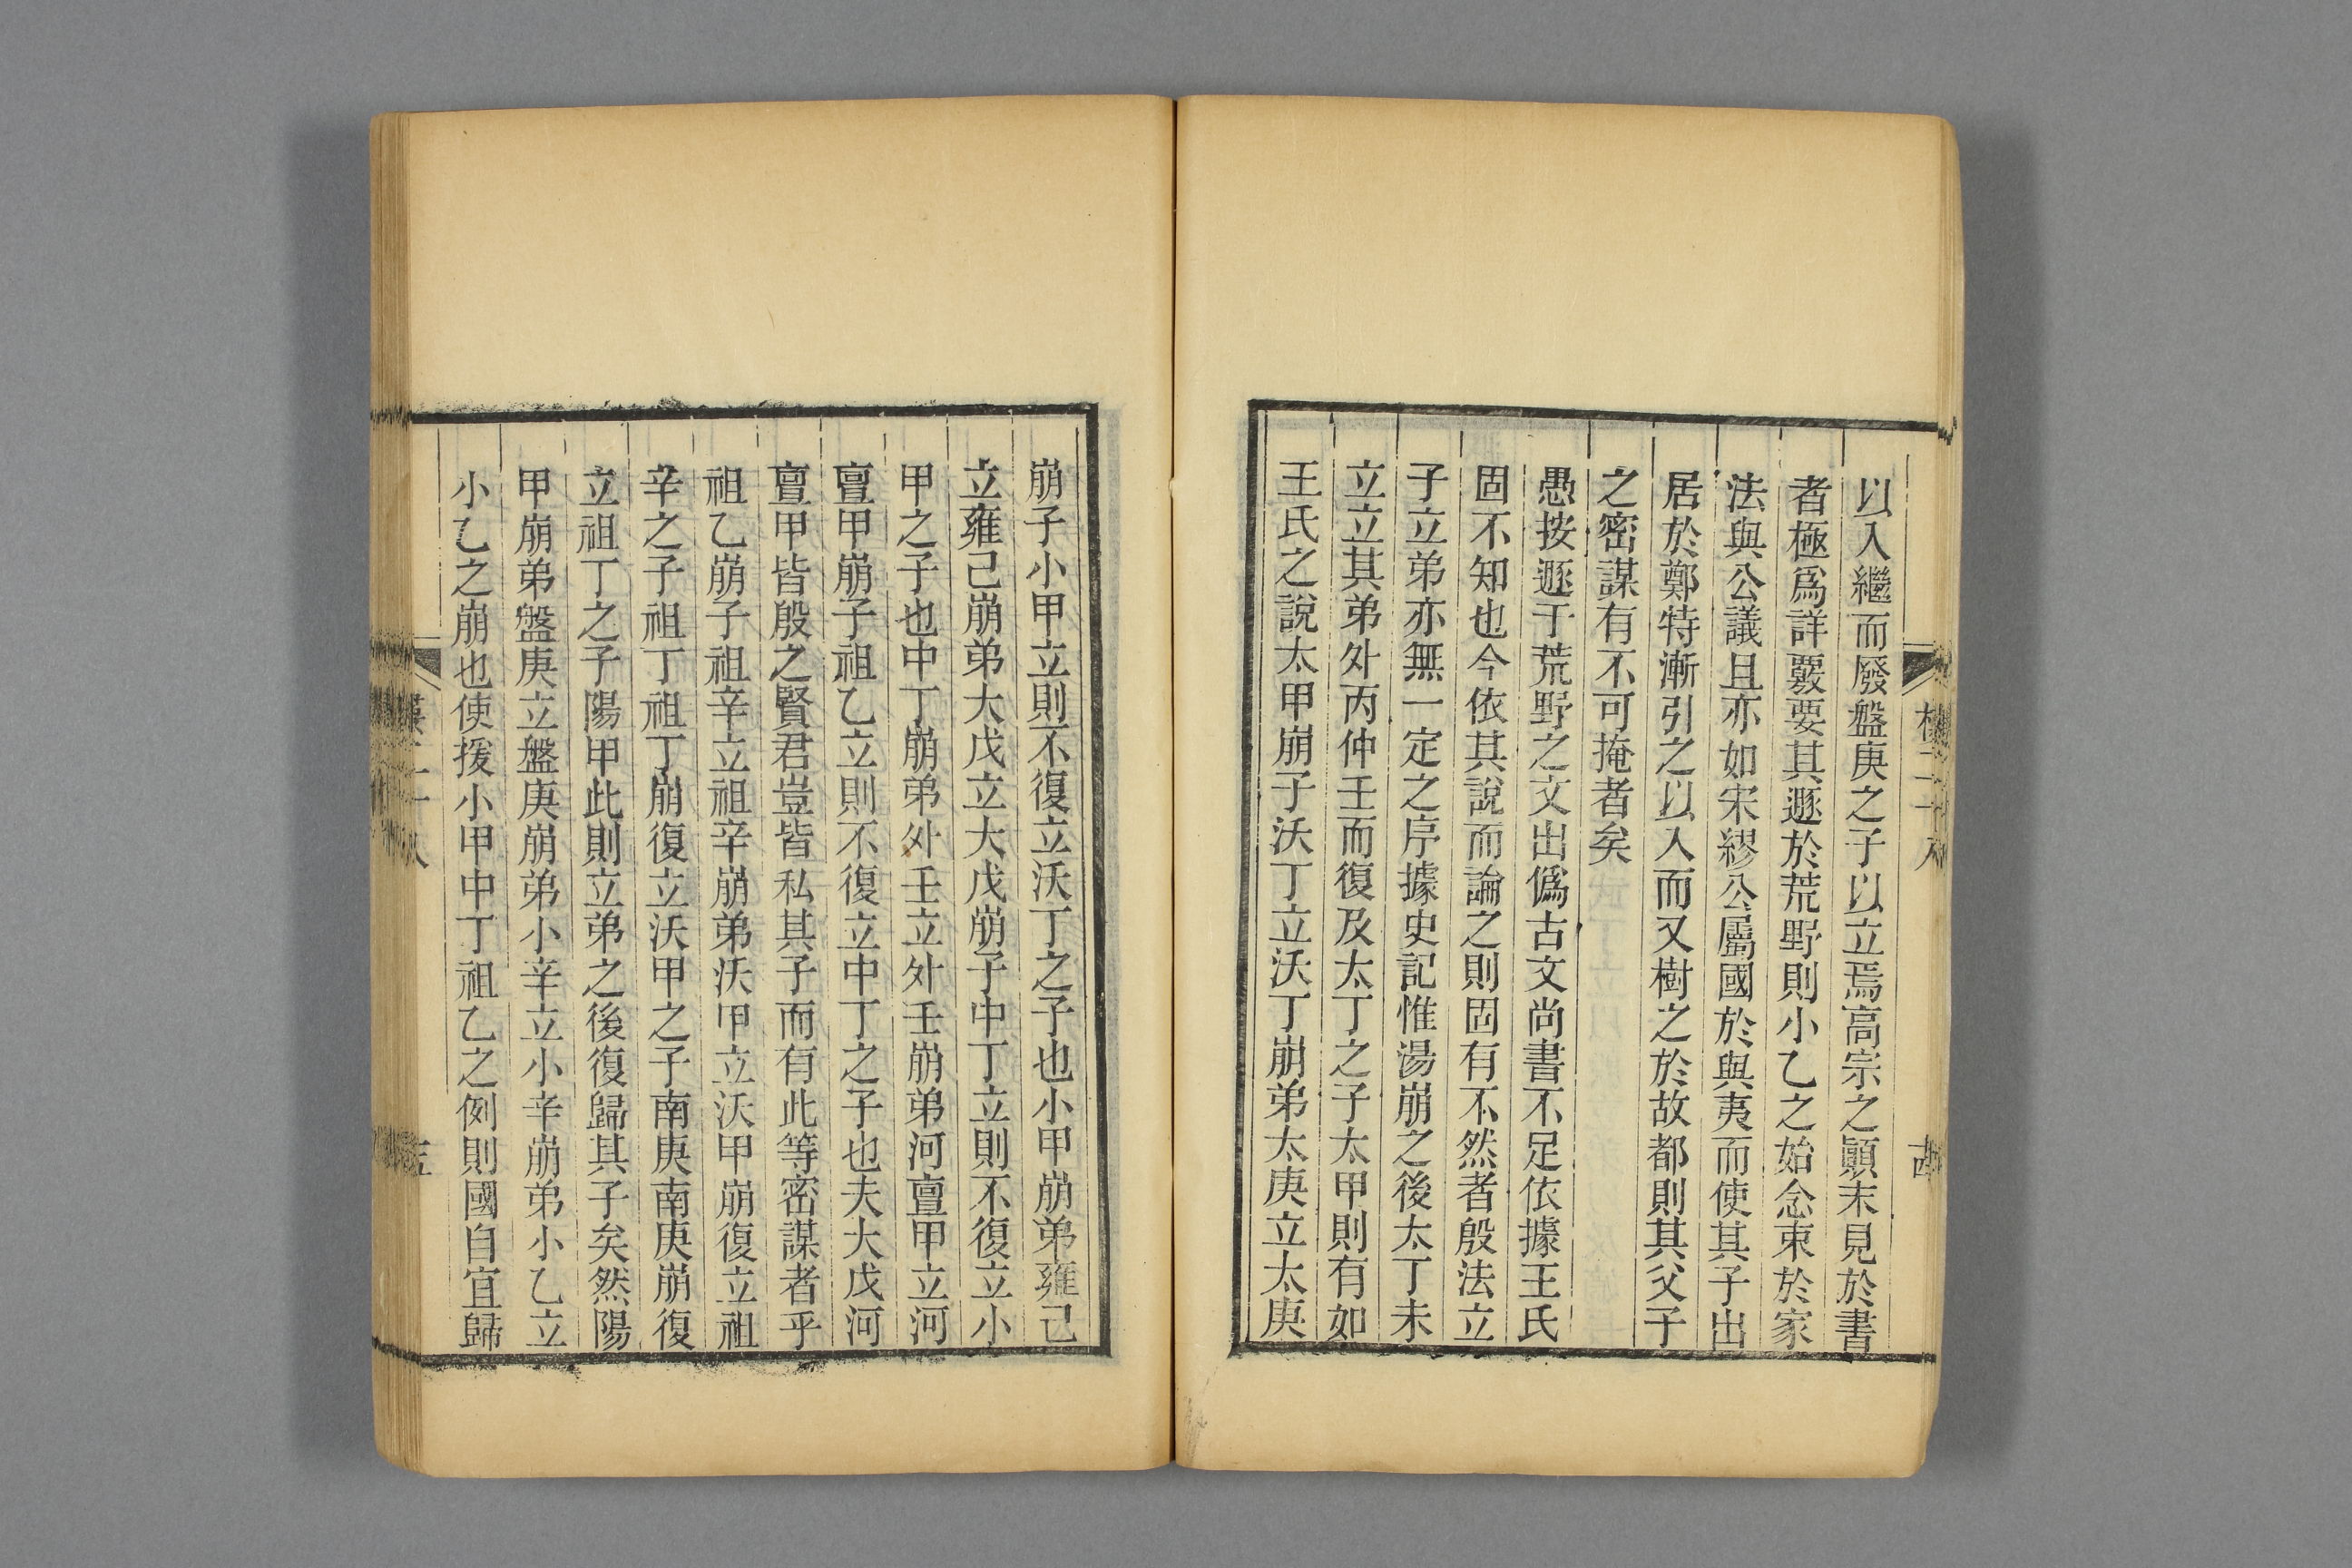 以入繼而廢盤庚之子以立焉高宗之顚末見於書
者極爲詳覈要其遯於荒野則小乙之始念束於家
法與公議且亦如宋繆公屬國於與夷而使其子出
居於鄭特漸引之以入而又樹之於故都則其父子
之密謀有不可掩者矣
愚按遯于荒野之文出僞古文尚書不足依據王氏
固不知也今依其說而論之則固有不然者殷法立
子立弟亦無一定之序據史記惟湯崩之後太丁未
立立其弟外丙仲壬而復及太丁之子太甲則有如
王氏之說太甲崩子沃丁立沃丁崩弟太庚立太庚
崩子小甲立則不復立沃丁之子也小甲崩弟雍己
立雍己崩弟大戊立大戊崩子中丁立則不復立小
甲之子也中丁崩弟外壬立外壬崩弟河亶甲立河
亶甲崩子祖乙立則不復立中丁之子也夫大戊河
亶甲皆殷之賢君豈皆私其子而有此等密謀者乎
祖乙崩子祖辛立祖辛崩弟沃甲立沃甲崩復立祖
辛之子祖丁祖丁崩復立沃甲之子南庚南庚崩復
立祖丁之子陽甲此則立弟之後復歸其子矣然陽
甲崩弟盤庚立盤庚崩弟小辛立小辛崩弟小乙立
小乙之崩也使援小甲中丁祖乙之例則國自宜歸